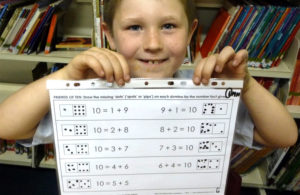 FRIENDS OF TEN (Draw the missing 'dots' ('spots' or 'pips') on each domino by the number fact given)
10 = 1 + 9 9 + 1 = 10
10 = 2 + 8 8 + 2 = 10
10 = 3 + 7 7 + 3 = 10
10 = 4 + 6 6 + 4 = 10
10 = 5 + 5